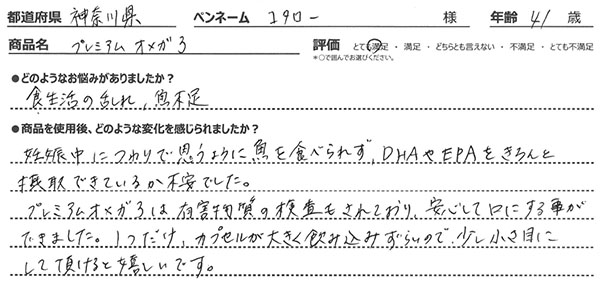 都道府県 神奈川県 ペンネーム ユタロー 様 年齢 41 歳
商品名 プレミアムオメガ3 評価 とても満足 ・ 満足 ・ どちらとも言えない ・ 不満足 ・ とても不満足
*○で囲んでお選びください。
●どのようなお悩みがありましたか？
食生活の乱れ、魚不足
●商品を使用後、どのような変化を感じられましたか？
妊娠中につわりで思うように魚を食べられず、DHAやEPAをきちんと
摂取できているか不安でした。
プレミアムオメガ3は有害物質の検査もされており、安心して口にする事が
できました。1つだけ、カプセルが大きく飲み込みずらいので、少し小さ目に
して頂けると嬉しいです。